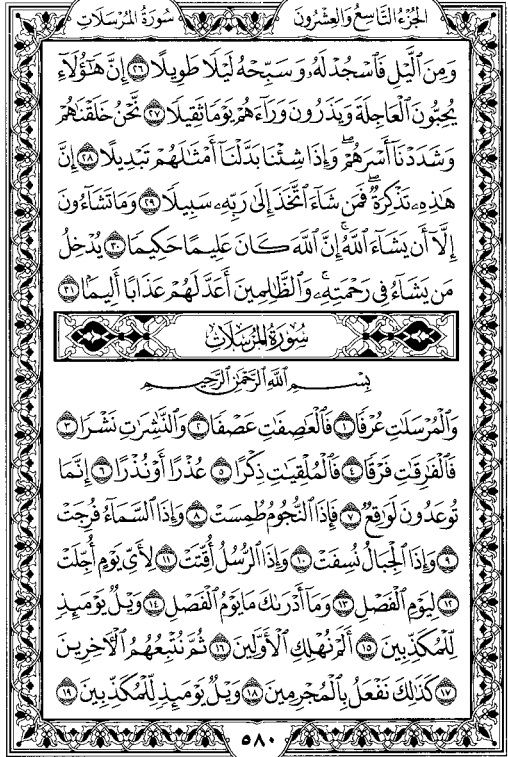 الجُزْءُ التَّاسِعُ وَالعِشْرُونَ سُورَةُ المُرْسَلَاتِ
وَمِنَ ٱلَّيْلِ فَٱسْجُدْ لَهُۥ وَسَبِّحْهُ لَيْلًا طَوِيلًا ٢٦ إِنَّ هَٰٓؤُلَآءِ
يُحِبُّونَ ٱلْعَاجِلَةَ وَيَذَرُونَ وَرَآءَهُمْ يَوْمًا ثَقِيلًا ٢٧ نَّحْنُ خَلَقْنَٰهُمْ
وَشَدَدْنَآ أَسْرَهُمْۖ وَإِذَا شِئْنَا بَدَّلْنَآ أَمْثَٰلَهُمْ تَبْدِيلًا ٢٨ إِنَّ
هَٰذِهِۦ تَذْكِرَةٌۖ فَمَن شَآءَ ٱتَّخَذَ إِلَىٰ رَبِّهِۦ سَبِيلًا ٢٩ وَمَا تَشَآءُونَ
إِلَّآ أَن يَشَآءَ ٱللَّهُۚ إِنَّ ٱللَّهَ كَانَ عَلِيمًا حَكِيمًا ٣٠ يُدْخِلُ
مَن يَشَآءُ فِى رَحْمَتِهِۦۚ وَٱلظَّٰلِمِينَ أَعَدَّ لَهُمْ عَذَابًا أَلِيمًۢا ٣١
سُورَةُ المُرْسَلَاتِ
بِسْمِ ٱللَّهِ ٱلرَّحْمَٰنِ ٱلرَّحِيمِ
وَٱلْمُرْسَلَٰتِ عُرْفًا ١ فَٱلْعَٰصِفَٰتِ عَصْفًا ٢ وَٱلنَّٰشِرَٰتِ نَشْرًا ٣
فَٱلْفَٰرِقَٰتِ فَرْقًا ٤ فَٱلْمُلْقِيَٰتِ ذِكْرًا ٥ عُذْرًا أَوْ نُذْرًا ٦ إِنَّمَا
تُوعَدُونَ لَوَٰقِعٌ ٧ فَإِذَا ٱلنُّجُومُ طُمِسَتْ ٨ وَإِذَا ٱلسَّمَآءُ فُرِجَتْ
٩ وَإِذَا ٱلْجِبَالُ نُسِفَتْ ١٠ وَإِذَا ٱلرُّسُلُ أُقِّتَتْ ١١ لِأَىِّ يَوْمٍ أُجِّلَتْ
١٢ لِيَوْمِ ٱلْفَصْلِ ١٣ وَمَآ أَدْرَىٰكَ مَا يَوْمُ ٱلْفَصْلِ ١٤ وَيْلٌ يَوْمَئِذٍ
لِّلْمُكَذِّبِينَ ١٥ أَلَمْ نُهْلِكِ ٱلْأَوَّلِينَ ١٦ ثُمَّ نُتْبِعُهُمُ ٱلْءَاخِرِينَ
١٧ كَذَٰلِكَ نَفْعَلُ بِٱلْمُجْرِمِينَ ١٨ وَيْلٌ يَوْمَئِذٍ لِّلْمُكَذِّبِينَ ١٩
٥٨٠